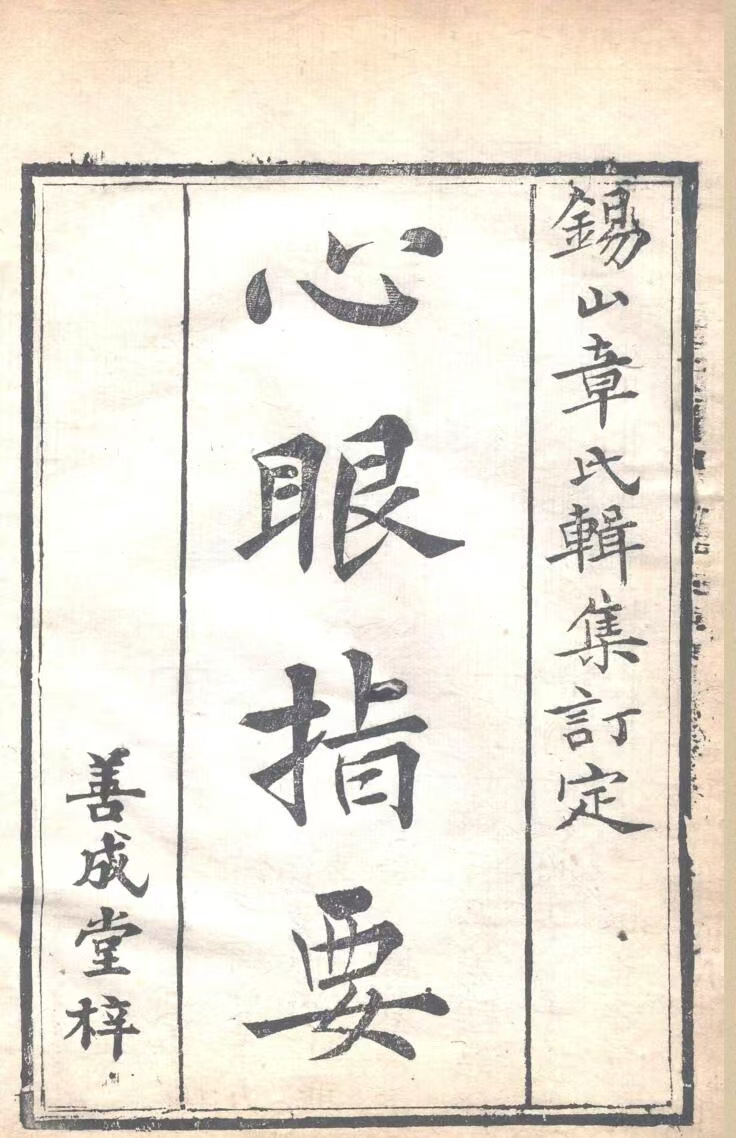 錫山章氏輯集訂定
心眼指要
善成堂梓